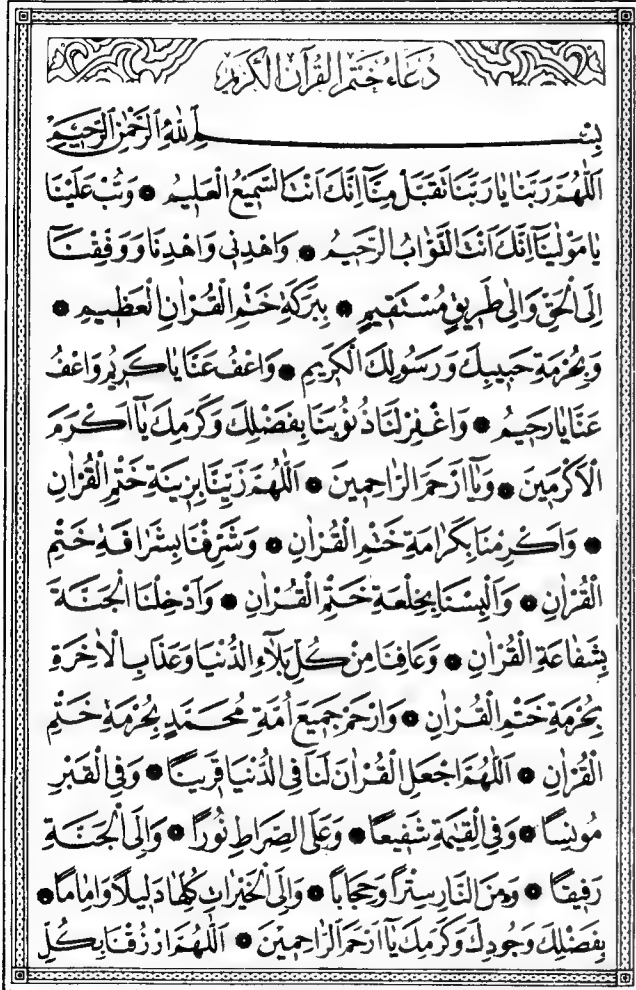 دُعَاءُ خَتْمِ الْقُرْآنِ الْكَرِيمِ
بِسْمِ اللّٰهِ الرَّحْمٰنِ الرَّحِيمِ
اَللّٰهُمَّ رَبَّنَا يَا رَبَّنَا تَقَبَّلْ مِنَّٓا اِنَّكَ اَنْتَ السَّمِيعُ الْعَلِيمُ ● وَتُبْ عَلَيْنَا
يَا مَوْلٰينَٓا اِنَّكَ اَنْتَ التَّوَّابُ الرَّحِيمُ ● وَاهْدِنِى وَاهْدِنَا وَوَفِّقْنَٓا
اِلَى الْحَقِّ وَاِلٰى طَرِيقٍ مُسْتَقِيمٍ ● بِبَرَكَةِ خَتْمِ الْقُرْاٰنِ الْعَظِيمِ ●
وَبِحُرْمَةِ حَبِيبِكَ وَرَسُولِكَ الْكَرِيمِ ● وَاعْفُ عَنَّا يَا كَرِيمُ وَاعْفُ
عَنَّا يَا رَحِيمُ ● وَاغْفِرْ لَنَا ذُنُوبَنَا بِفَضْلِكَ وَكَرَمِكَ يَٓا اَكْرَمَ
الْاَكْرَمِينَ ● وَيَٓا اَرْحَمَ الرَّاحِمِينَ ● اَللّٰهُمَّ زَيِّنَّا بِزِينَةِ خَتْمِ الْقُرْاٰنِ
● وَاَكْرِمْنَا بِكَرَامَةِ خَتْمِ الْقُرْاٰنِ ● وَشَرِّفْنَا بِشَرَافَةِ خَتْمِ
الْقُرْاٰنِ ● وَاَلْبِسْنَا بِخِلْعَةِ خَتْمِ الْقُرْاٰنِ ● وَاَدْخِلْنَا الْجَنَّةَ
بِشَفَاعَةِ الْقُرْاٰنِ ● وَعَافِنَا مِنْ كُلِّ بَلَٓاءِ الدُّنْيَا وَعَذَابِ الْاٰخِرَةِ
بِحُرْمَةِ خَتْمِ الْقُرْاٰنِ ● وَارْحَمْ جَمِيعَ اُمَّةِ مُحَمَّدٍ بِحُرْمَةِ خَتْمِ
الْقُرْاٰنِ ● اَللّٰهُمَّ اجْعَلِ الْقُرْاٰنَ لَنَا فِى الدُّنْيَا قَرِينًا ● وَفِى الْقَبْرِ
مُونِسًا ● وَفِى الْقِيٰمَةِ شَفِيعًا ● وَعَلَى الصِّرَاطِ نُورًا ● وَاِلَى الْجَنَّةِ
رَفِيقًا ● وَمِنَ النَّارِ سِتْرًا وَحِجَابًا ● وَاِلَى الْخَيْرَاتِ كُلِّهَا دَلِيلًا وَاِمَامًا ●
بِفَضْلِكَ وَجُودِكَ وَكَرَمِكَ يَٓا اَرْحَمَ الرَّاحِمِينَ ● اَللّٰهُمَّ ارْزُقْنَا بِكُلِّ